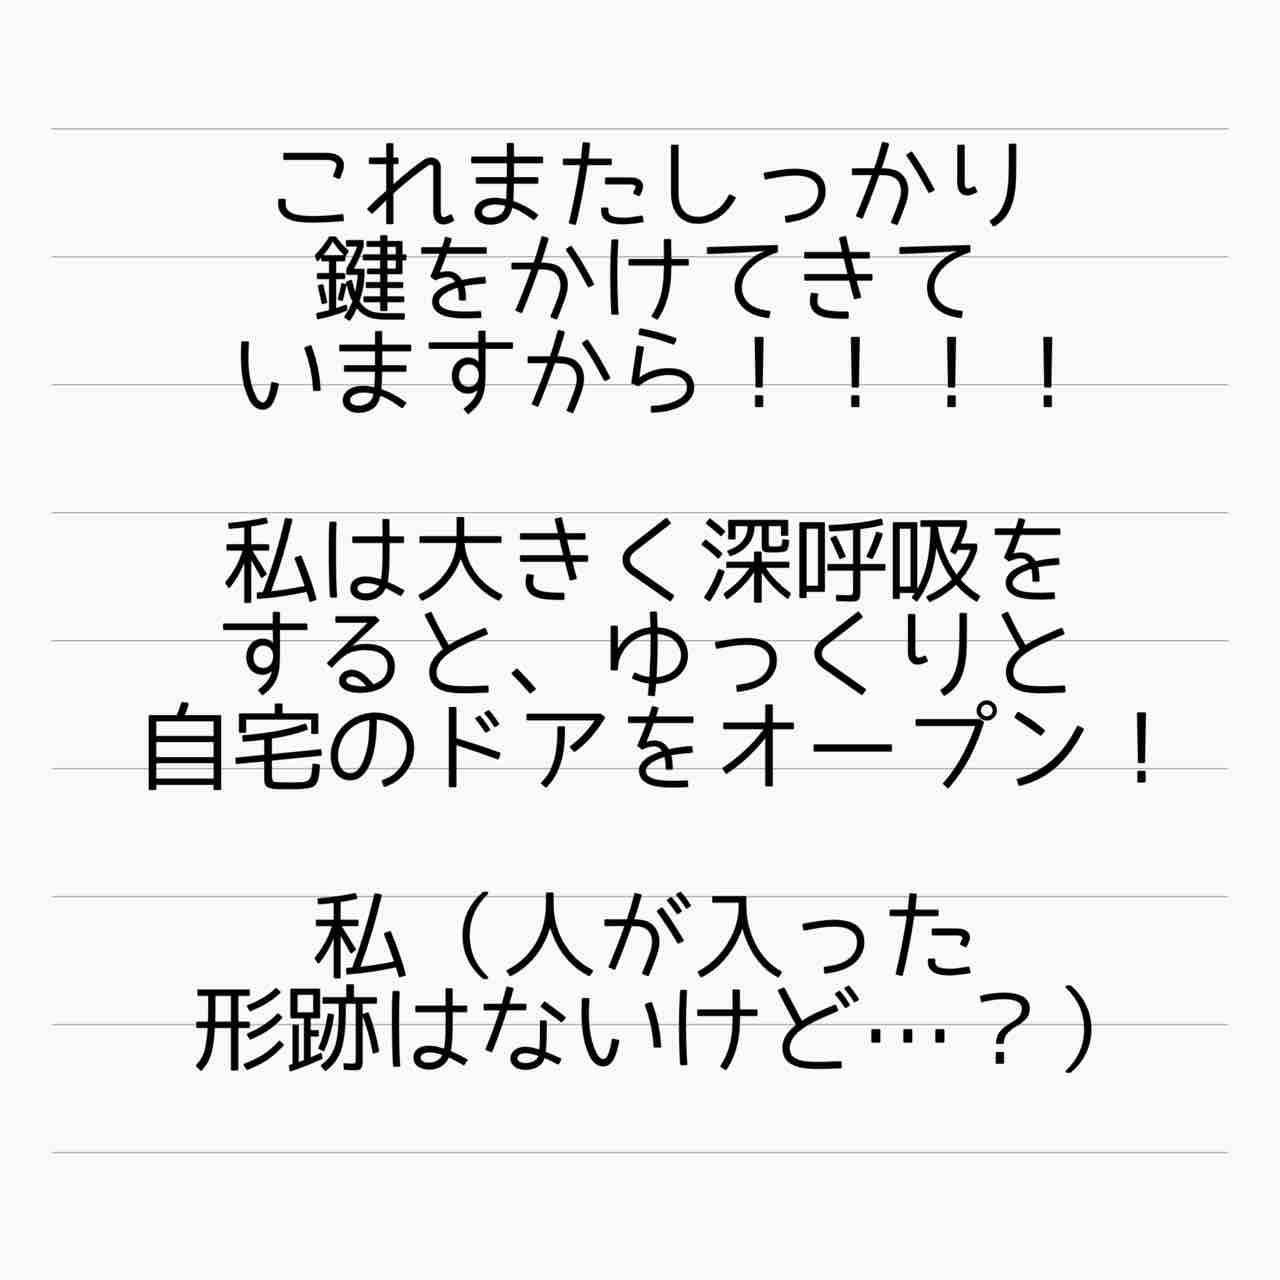 これまたしっかり
鍵をかけてきて
いますから！！！！
私は大きく深呼吸を
すると、ゆっくりと
自宅のドアをオープン！
私（人が入った
形跡はないけど…？）